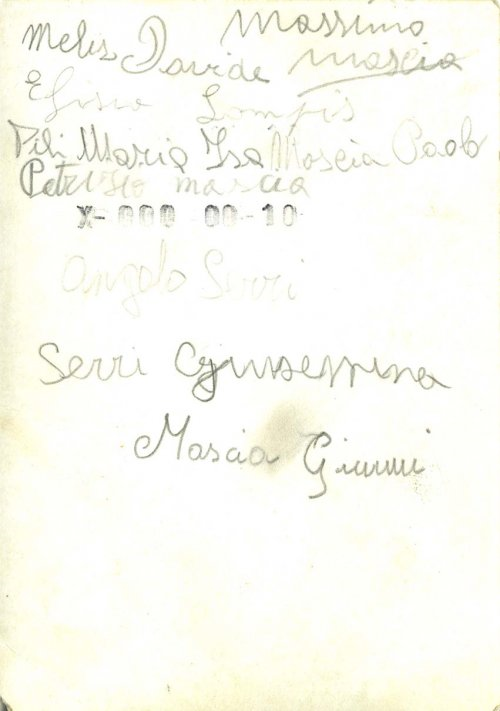 Massimo
Melis Davide Mascia
Efisio Lompis
Pili Maria Isa Mascia Paolo
Petruzio mascia
X-000 00-10
Angelo Serri
Serri Giuseppina
Mascia Gianni